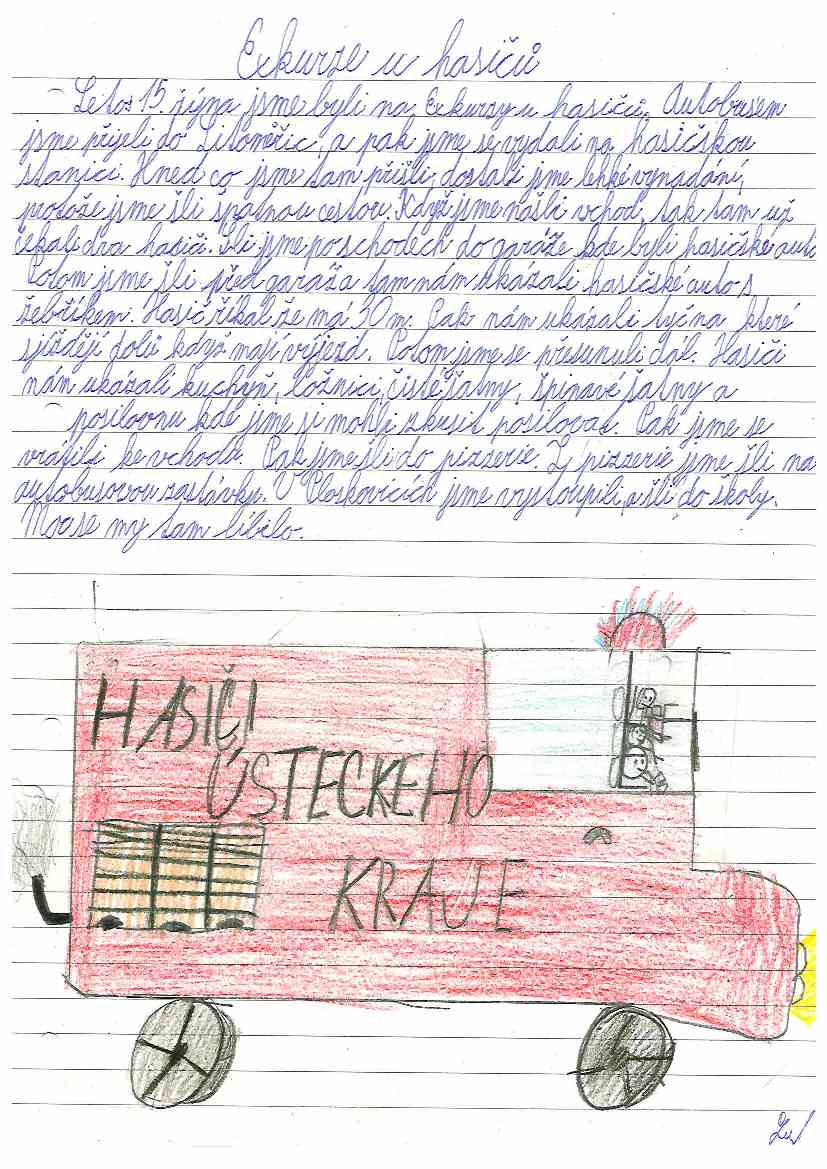 Exkurze u hasičů
Letos 15. října jsme byli na Exkurzy u hasičů. Autobusem
jsme přijeli do Litoměřic, a pak jsme se vydali na hasičskou
stanici. Hned co jsme tam přišli, dostali jsme lehké vynadání,
protože jsme šli špatnou cestou. Když jsme našli vchod, tak tam už
čekali dva hasiči. Šli jsme po schodech do garáže kde byli hasičské auto
Potom jsme šli před garáž a tam nám ukázali hasičské auto s
žebříkem. Hasič říkal že má 30 m. Pak nám ukázali tyč na které
sjíždějí dolů když mají výjezd. Potom jsme se přesunuli dál. Hasiči
nám ukázali kuchyň, ložnici, čisté šatny, špinavé šatny a
posilovnu kde jsme si mohli zkusit posilovat. Pak jsme se
vrátili ke vchodu. Pak jsme šli do pizzerie. Z pizzerie jsme šli na
autobusovou zastávku. V Ploskovicích jsme vystoupili, a šli do školy.
Moc se my tam líbilo.
HASIČI
ÚSTECKEHO
KRAJE